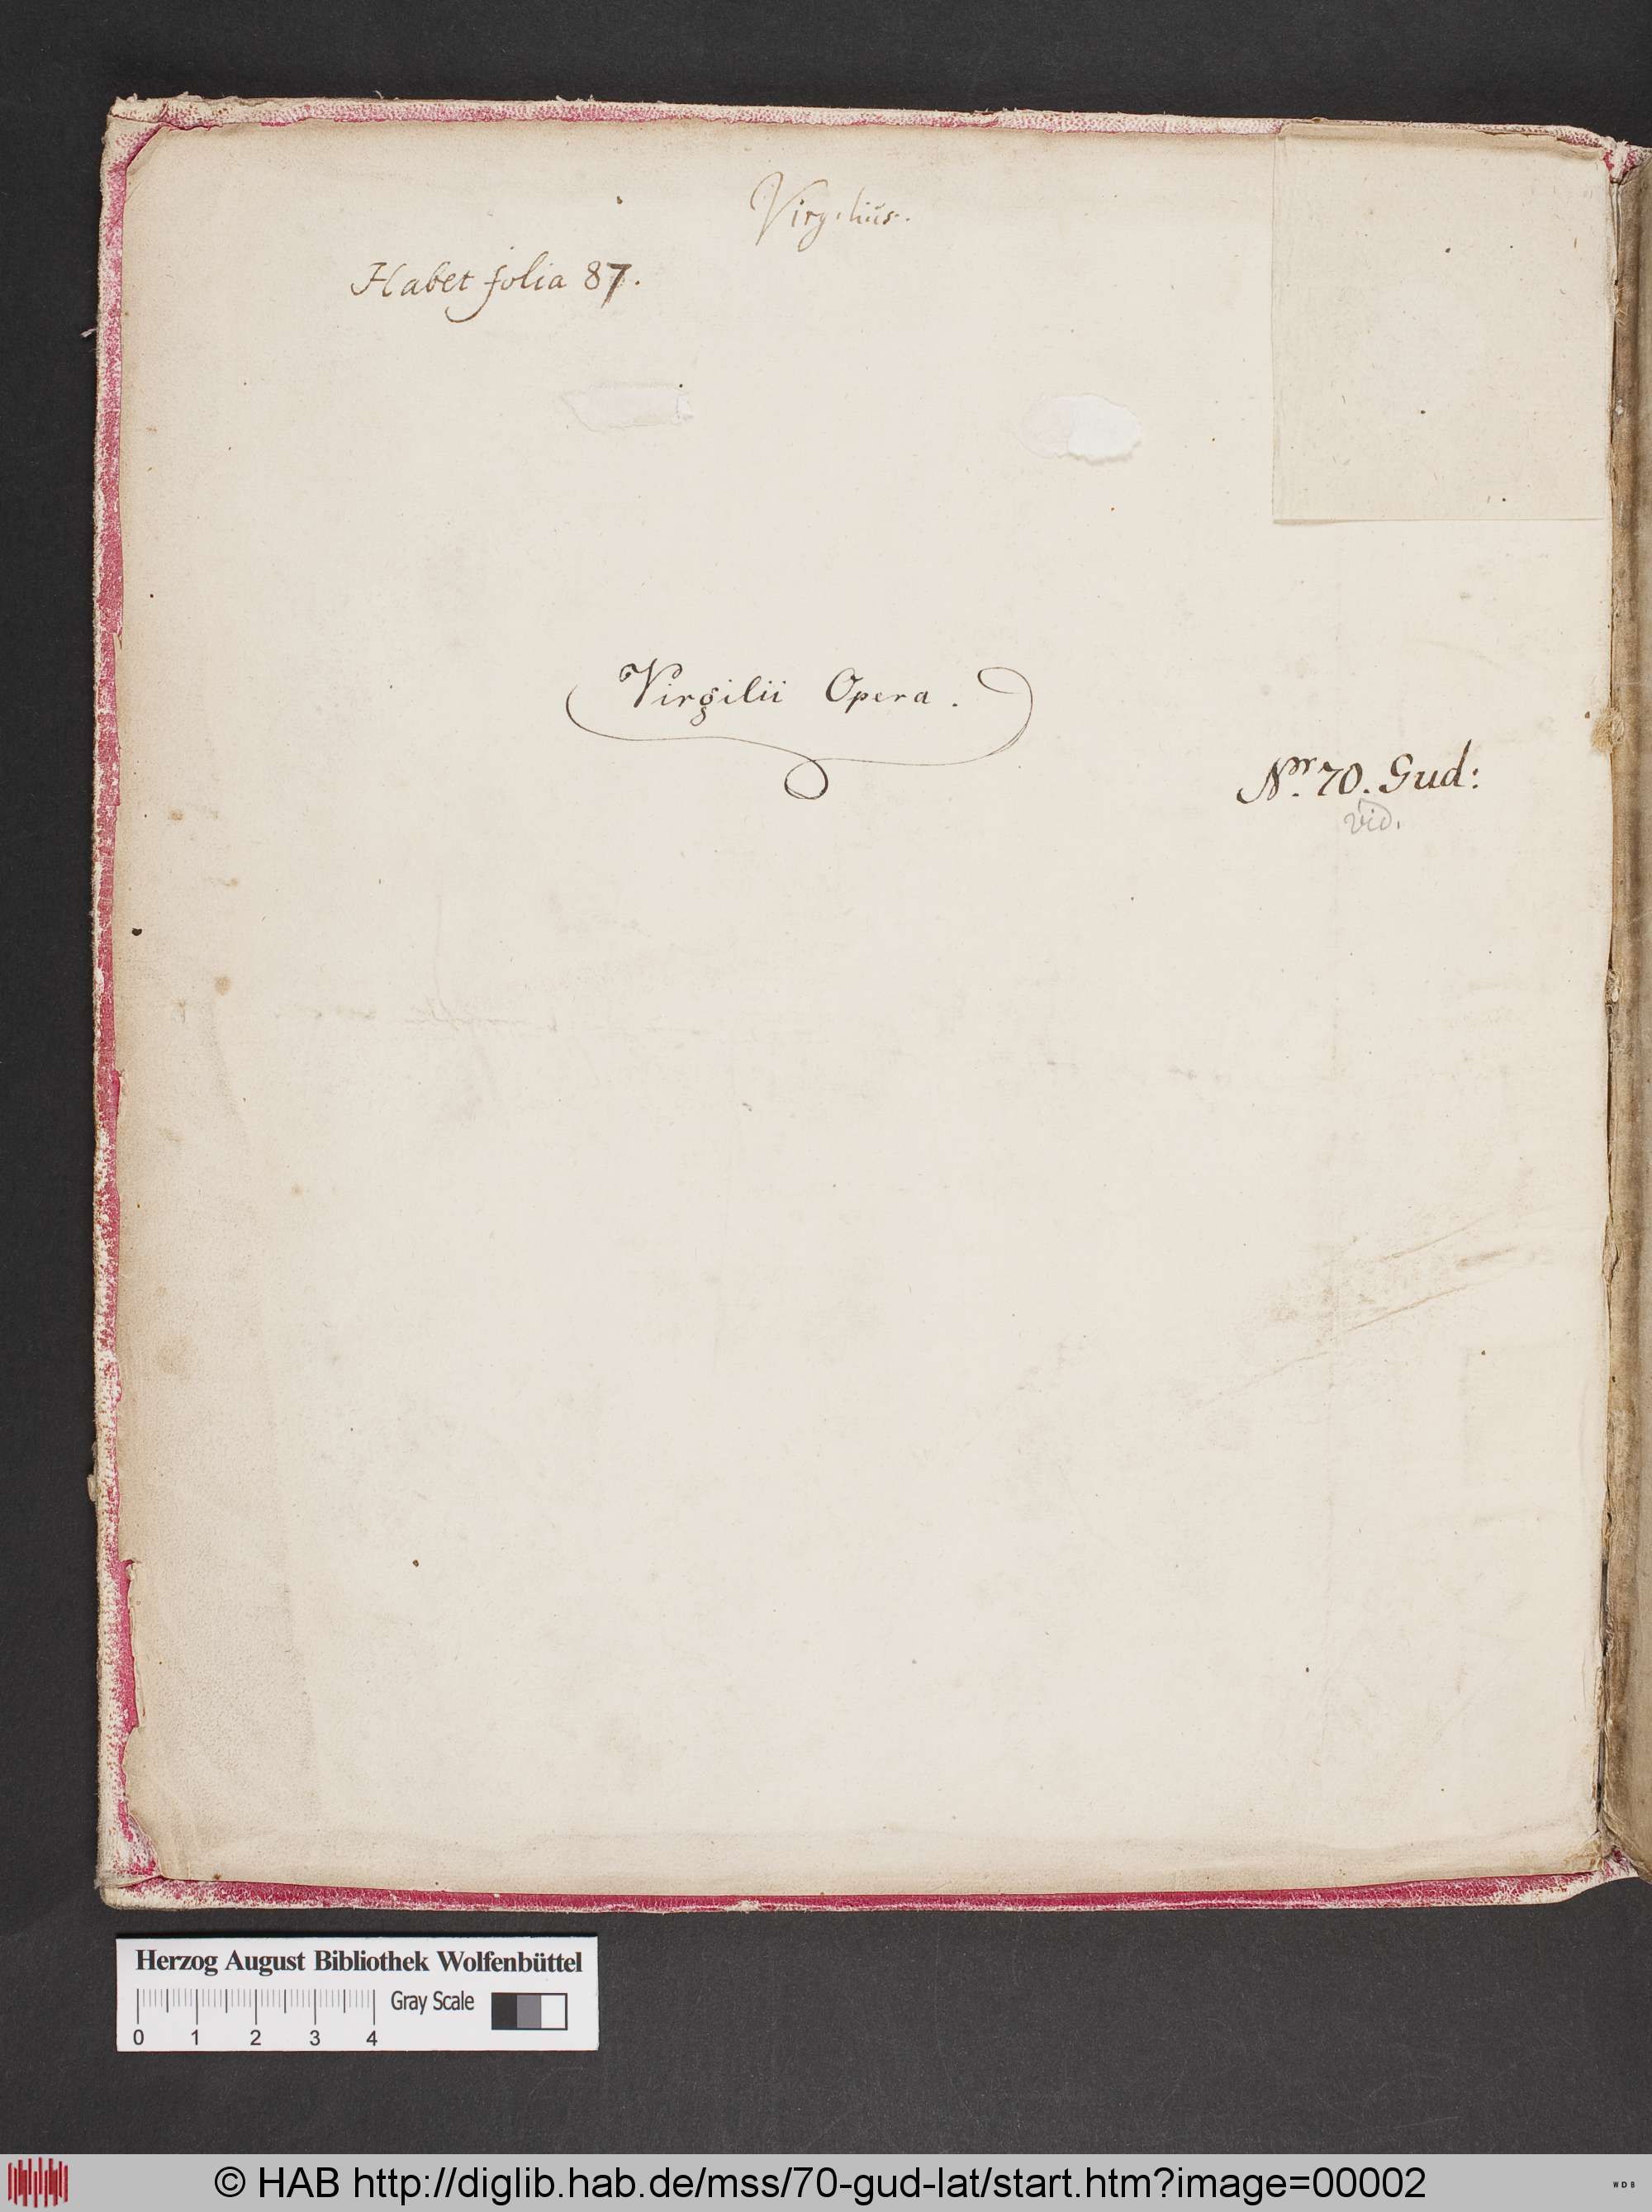 Virgilius.
Habet folia 87.
Virgilii Opera.
Nr. 70. Gud:
vid.
Herzog August Bibliothek Wolfenbüttel
Gray Scale
0 1 2 3 4
© HAB http://diglib.hab.de/mss/70-gud-lat/start.htm?image=00002
WDB